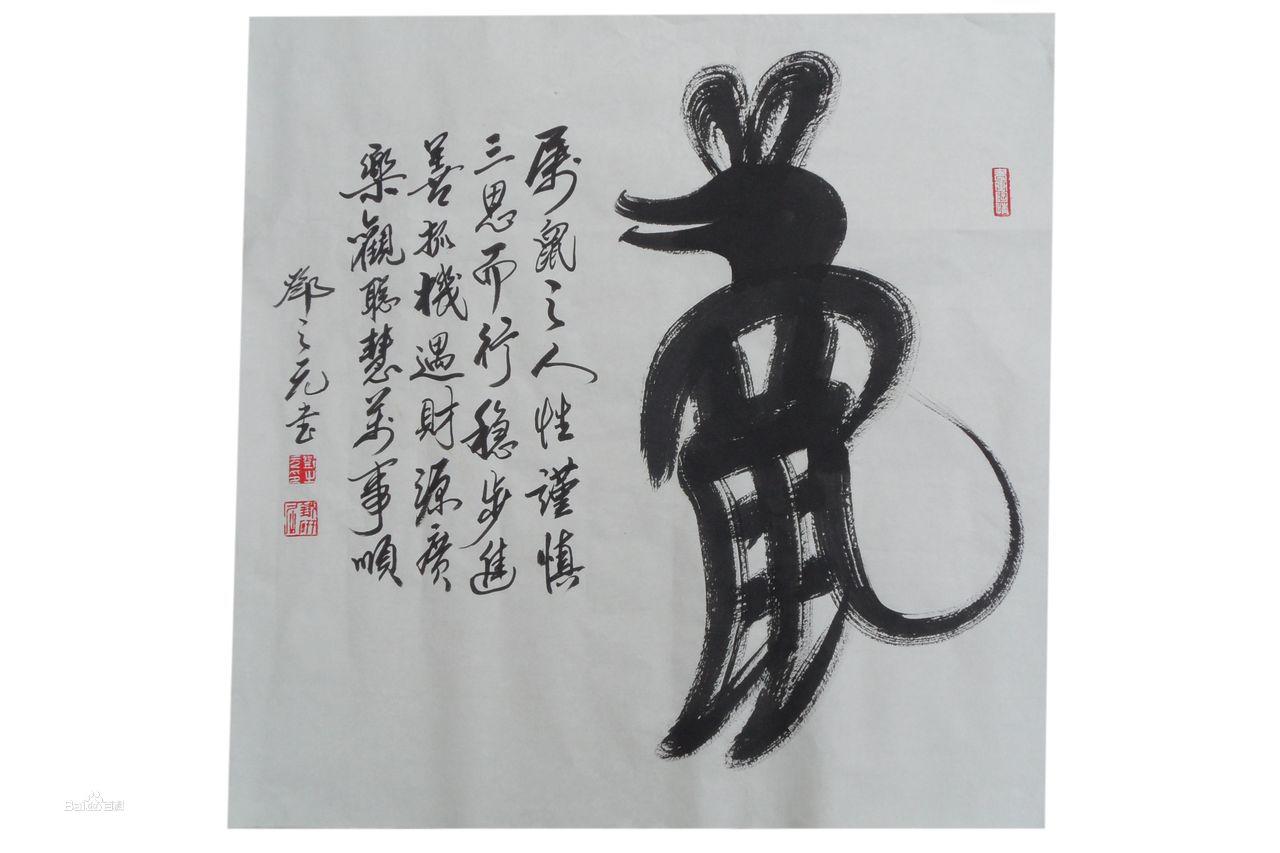 属鼠之人性謹慎
三思而行稳步進
善抓機遇財源廣
樂觀聪慧萬事順
鄧之元书
Baidu百科